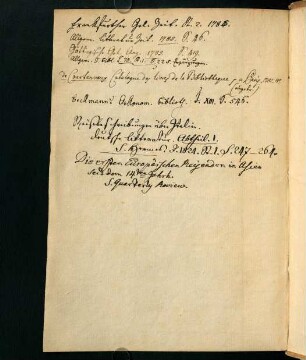 Frankfurther Gel. Zeit. St. 2. 1786.
Allgem. Litteratur Zeit. 1785. S. 46.
Gel. Anz. 1785. S. 419.
Allgem. D. Bibl.
de Courtanvaux Catalogue des livres de la Bibliotheque a Paris
Beckmann's Oekonom. Biblioth. T. XIII. S. 545.
Reisebeschreibungen über Italien
deutsche Litteratur. Abtheil. 1.
S. Hermes 1824. St. 1. S. 247-264.
Die ersten Europäischen Reisenden in Asien
seit dem 14ten Jahrh.
S. Quarterly Review.